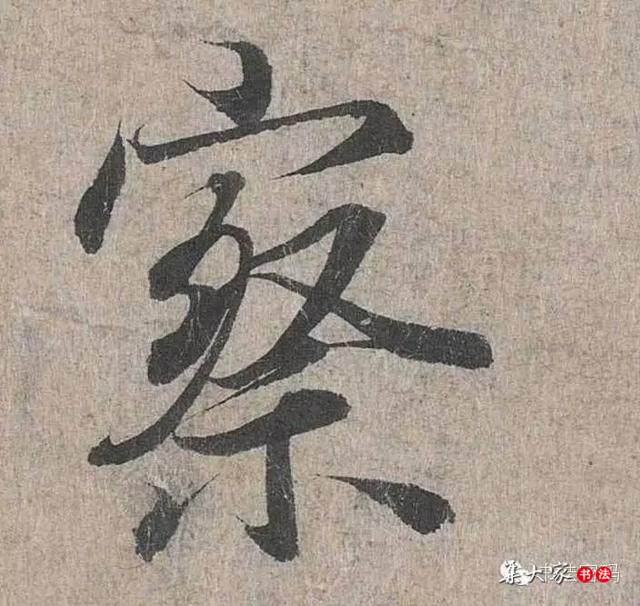 察
集大家书法